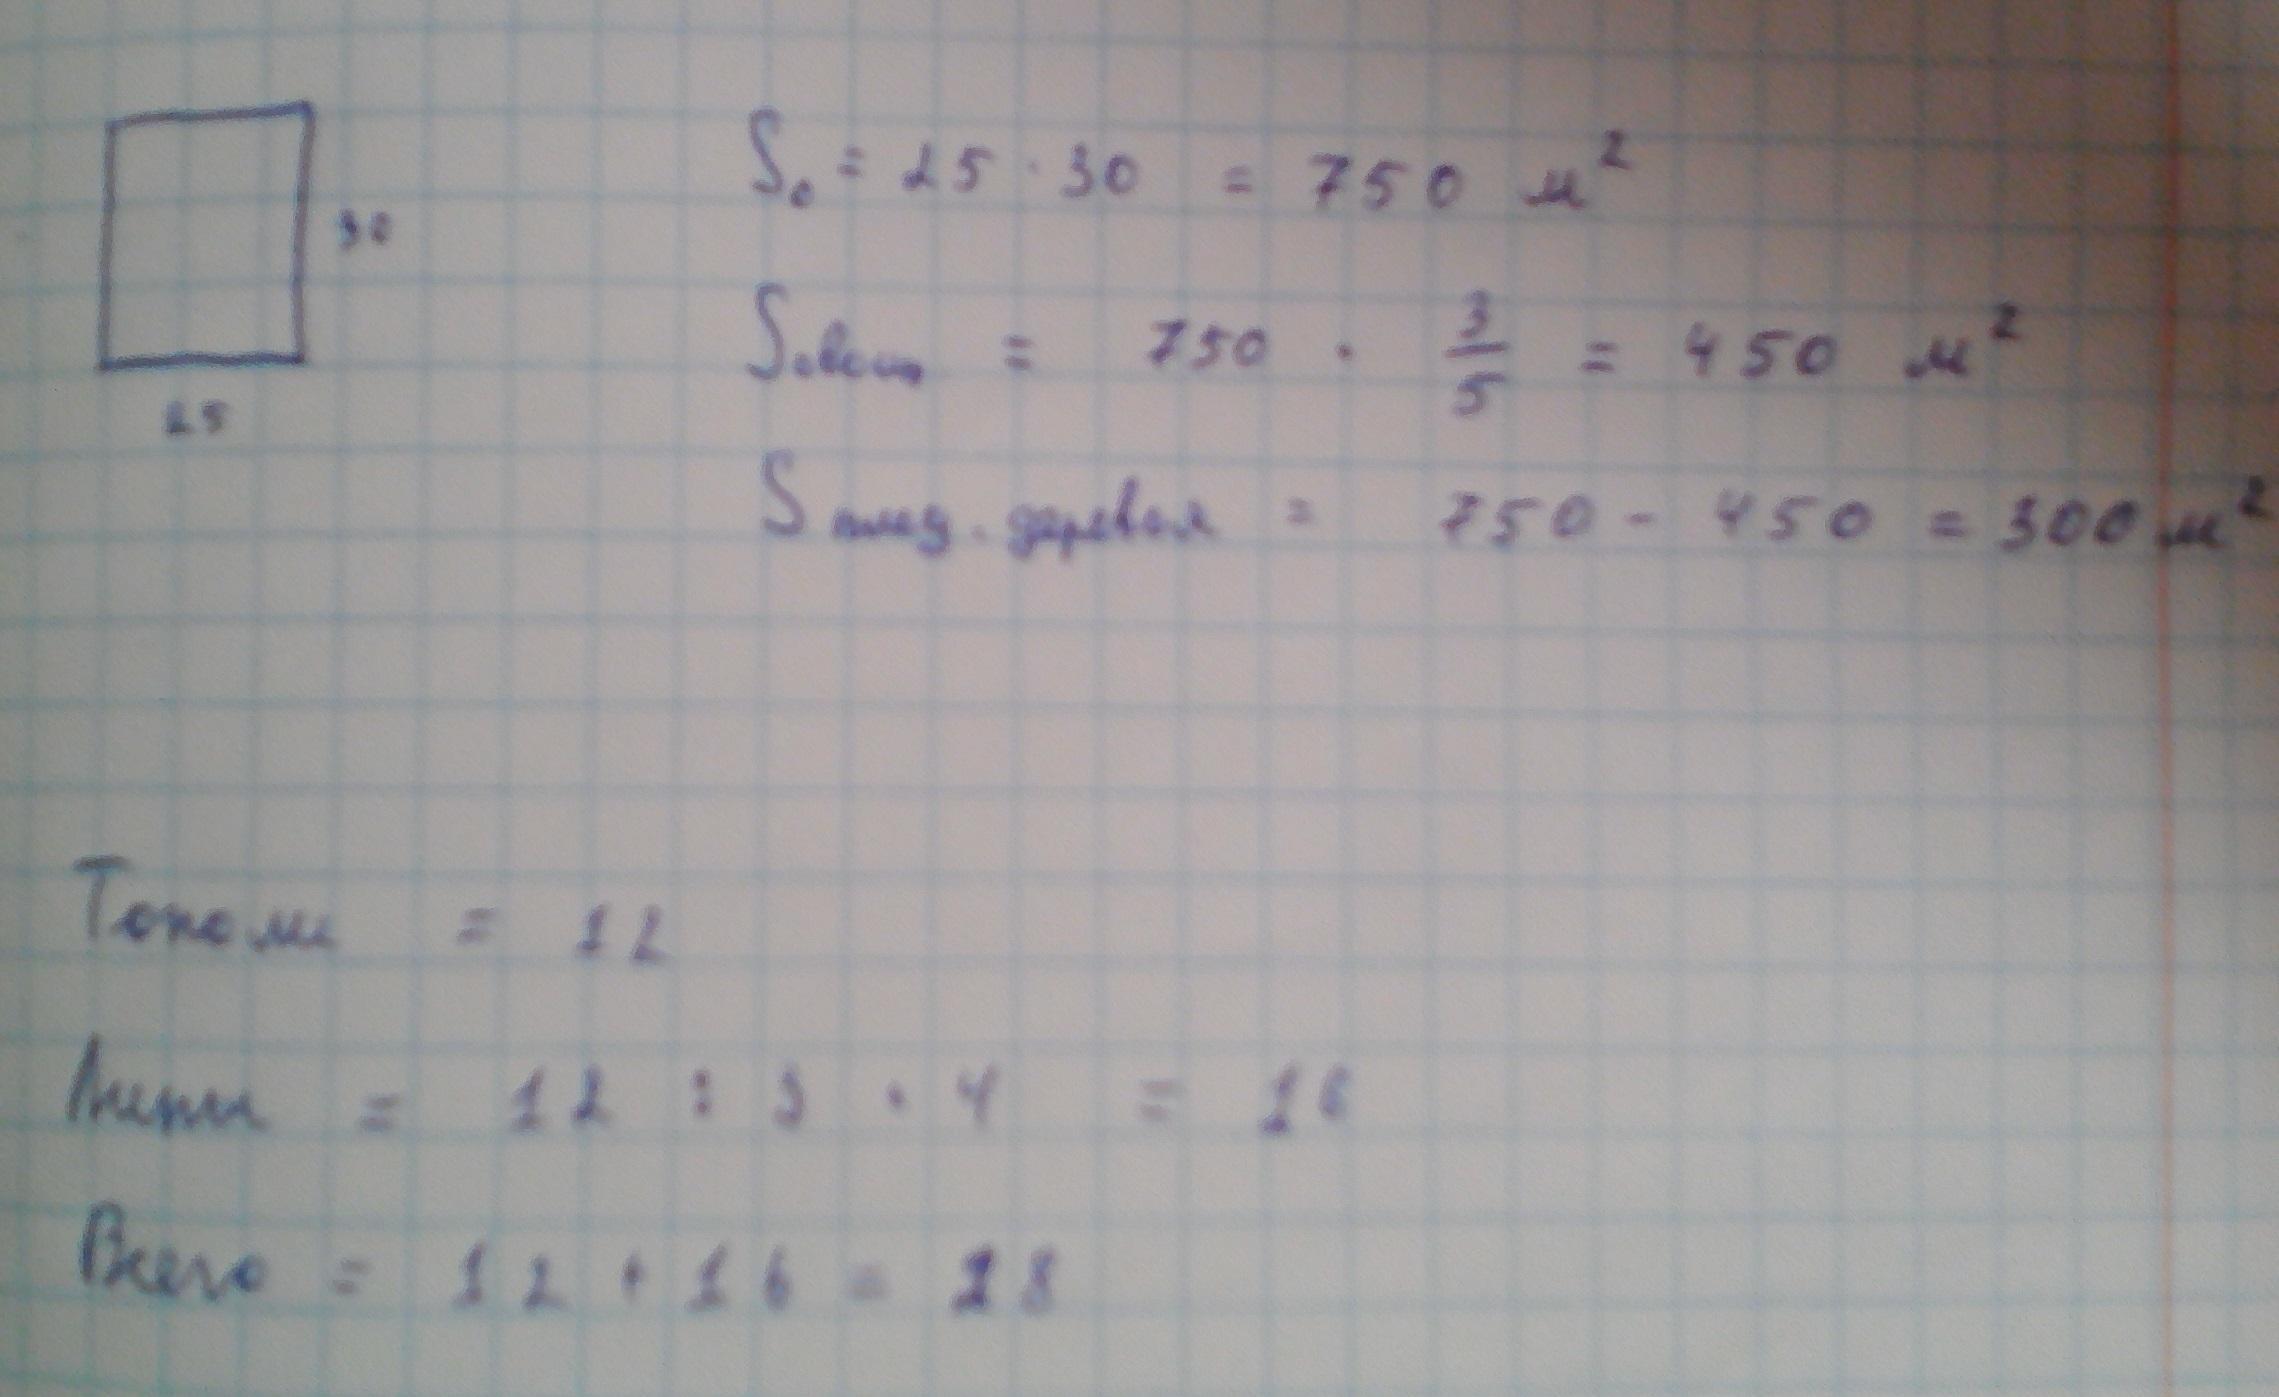 30
25
S₀ = 25 · 30 = 750 м²
S = 750 · 3/5 = 450 м²
S плод. деревья = 750 - 450 = 300 м²
Тополи = 12
Липы = 12 : 3 · 4 = 16
Всего = 12 + 16 = 28